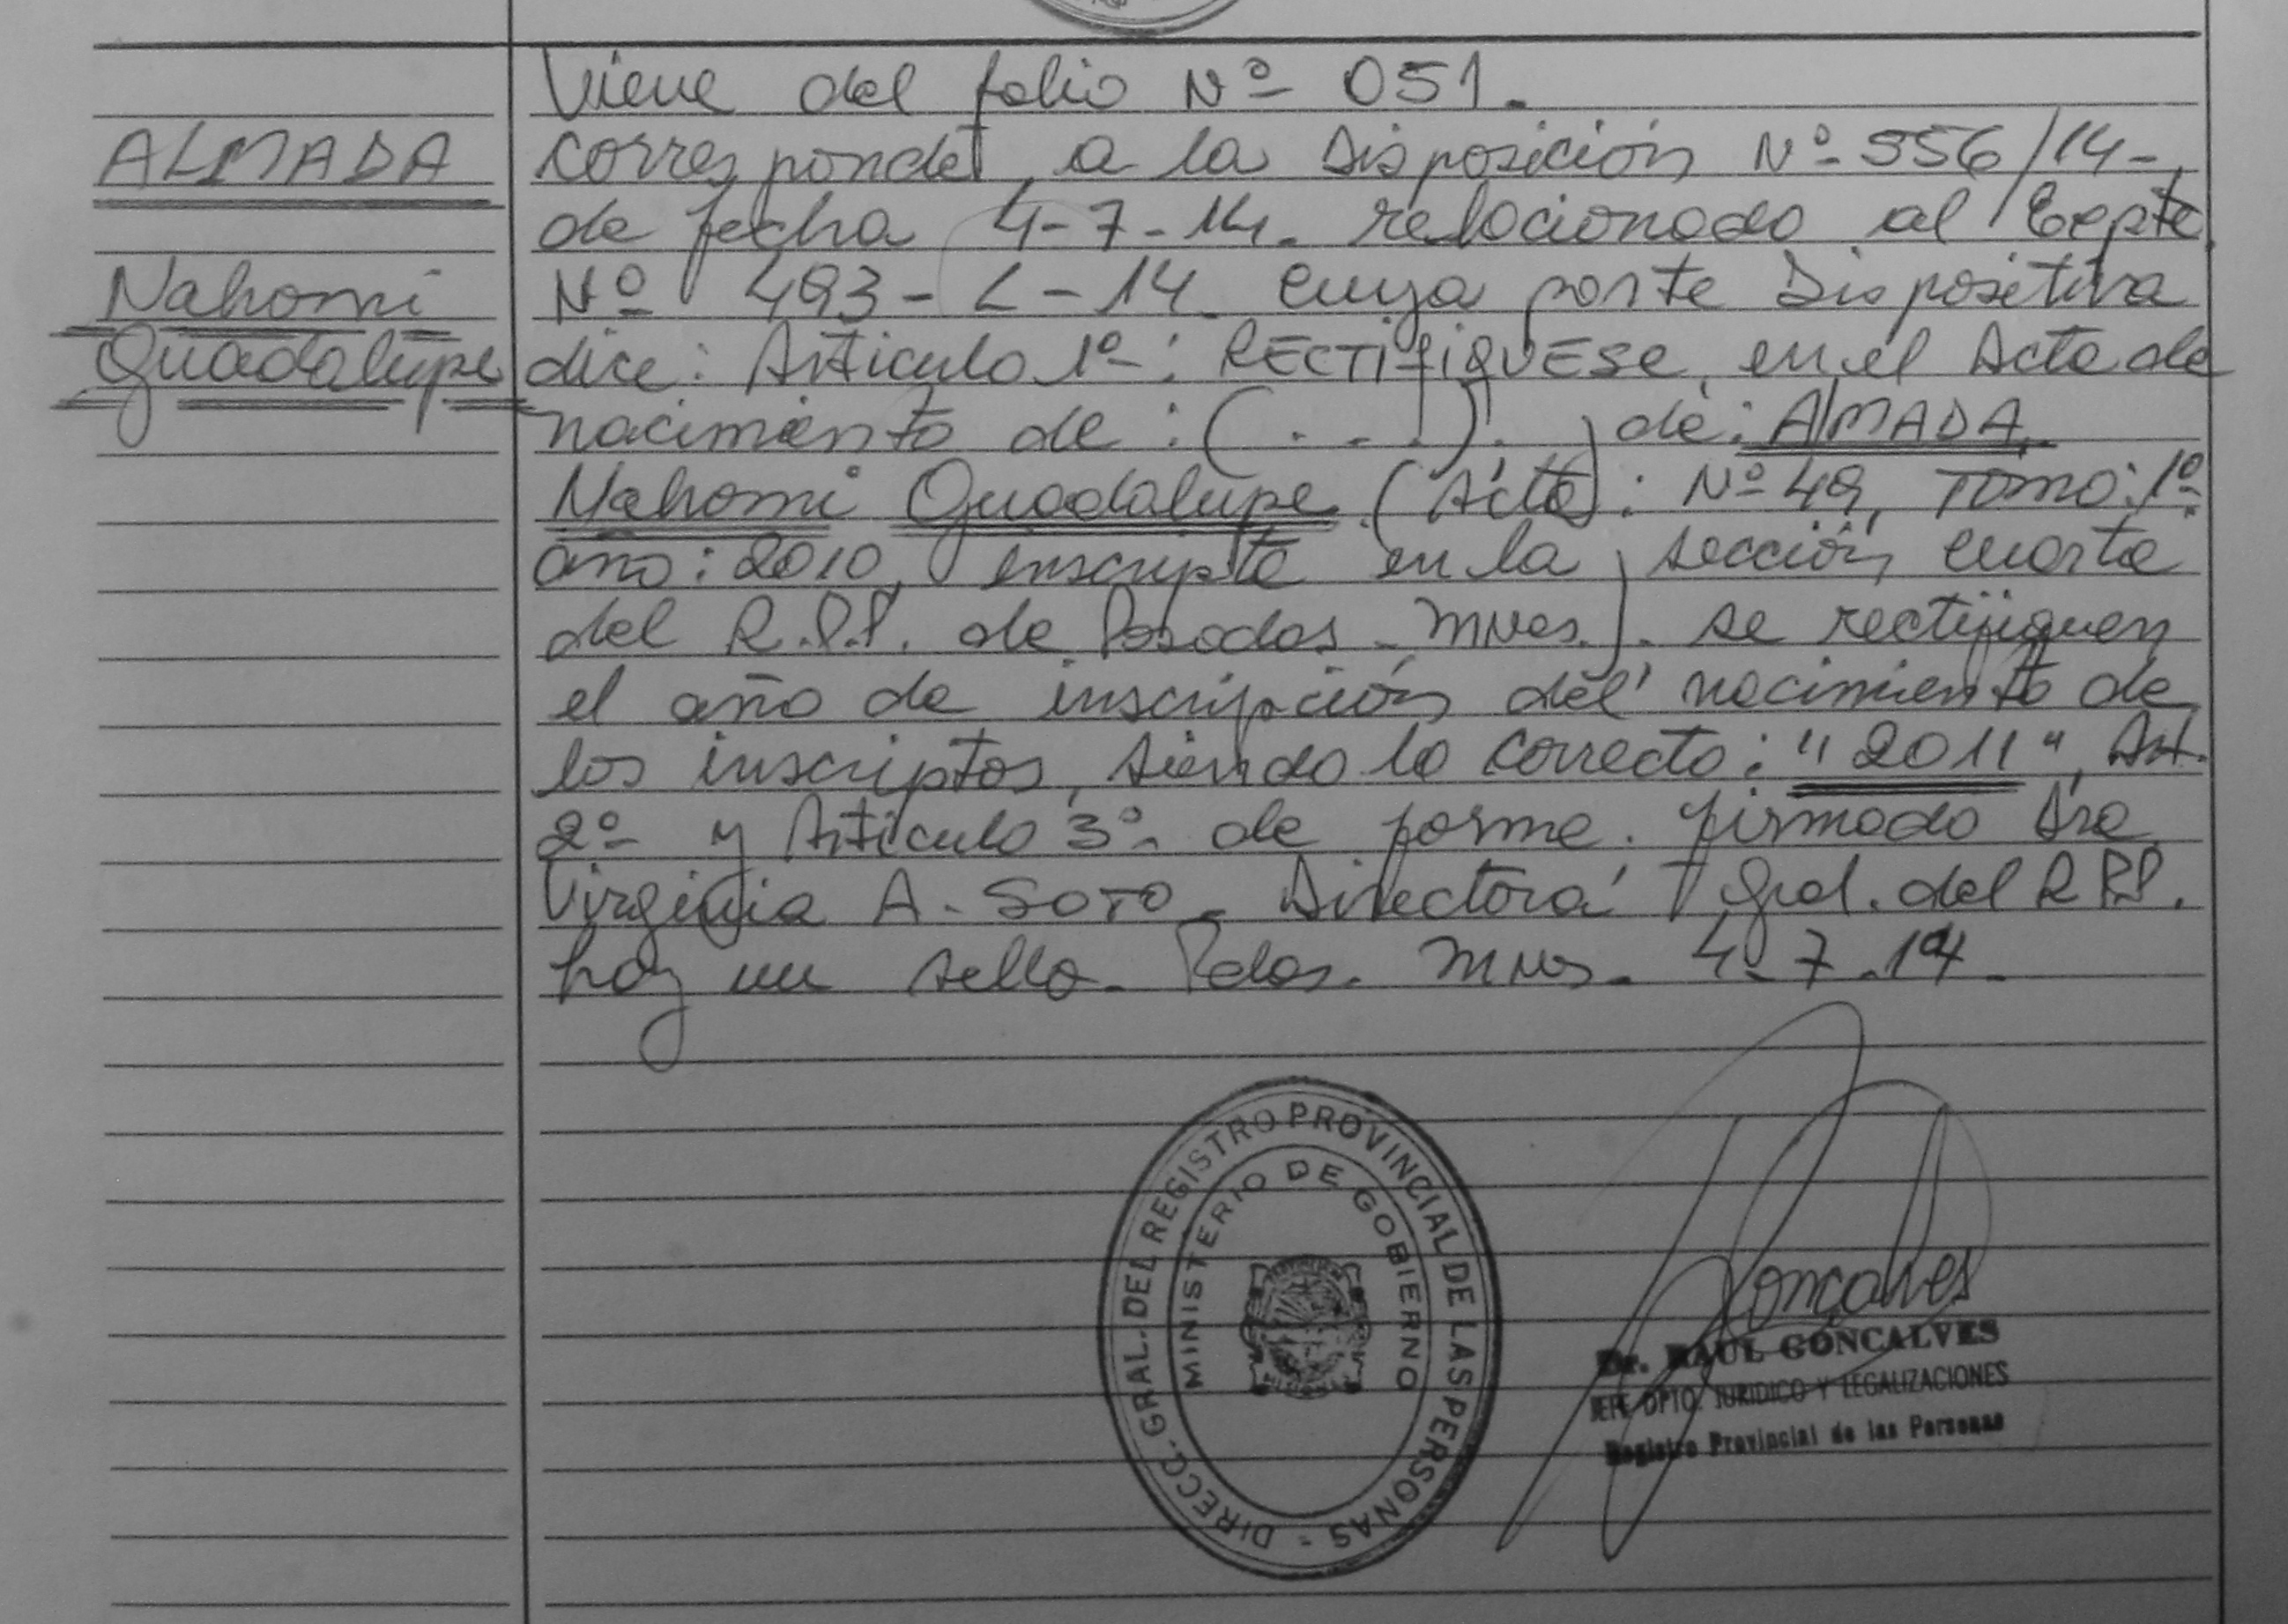 Viene del folio Nº 051.
ALMADA
Nahomi
Guadalupe
corresponde a la Disposición Nº 556/14-
de fecha 4-7-14. relacionado al Expte.
Nº 493-L-14. cuya parte Dispositiva
dice: Articulo 1º: RECTIFIQUESE, en el Acta de
nacimiento de: (...). de: ALMADA,
Nahomi Guadalupe (Acta: Nº 49, Tomo: 1º
año: 2010, inscripta en la sección cuarta
del R.P.P. de Posadas - Mnes.). se rectifiquen
el año de inscripción del nacimiento de
los inscriptos, siendo lo correcto: "2011", Art.
2º y Articulo 3º. de forma. firmado Dra
Virginia A. SOTO - Directora Gral. del R.P.P.
hay un sello. Pdas. Mnes. 4-7-14.
DIRECC. GRAL. DEL REGISTRO PROVINCIAL DE LAS PERSONAS -
MINISTERIO DE GOBIERNO
Goncalves
Dr. RAUL GONCALVES
JEFE DPTO. JURIDICO Y LEGALIZACIONES
Registro Provincial de las Personas